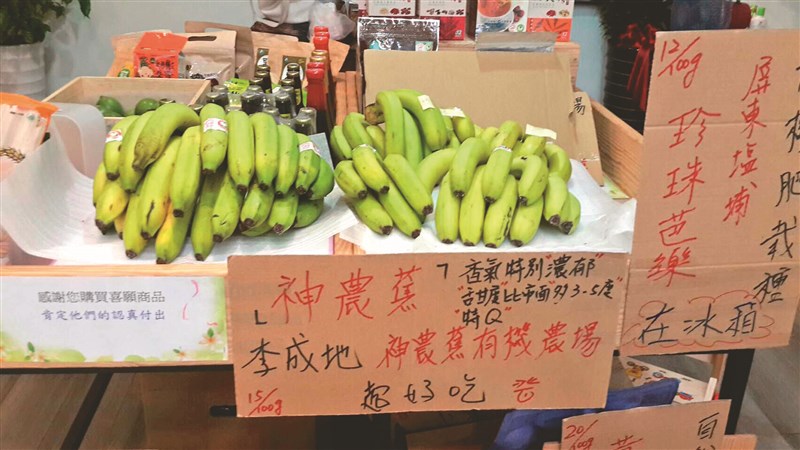 感謝您購買喜願商品
肯定他們的認真付出
「神農蕉」
香氣特別濃郁
"含甘度"比市面"多3-5度
"特Q"
李成地 神農蕉有機農場
15/100g
超好吃
12/100g
屏東塩埔
珍珠芭樂
有機肥栽種
在冰箱
20/100g